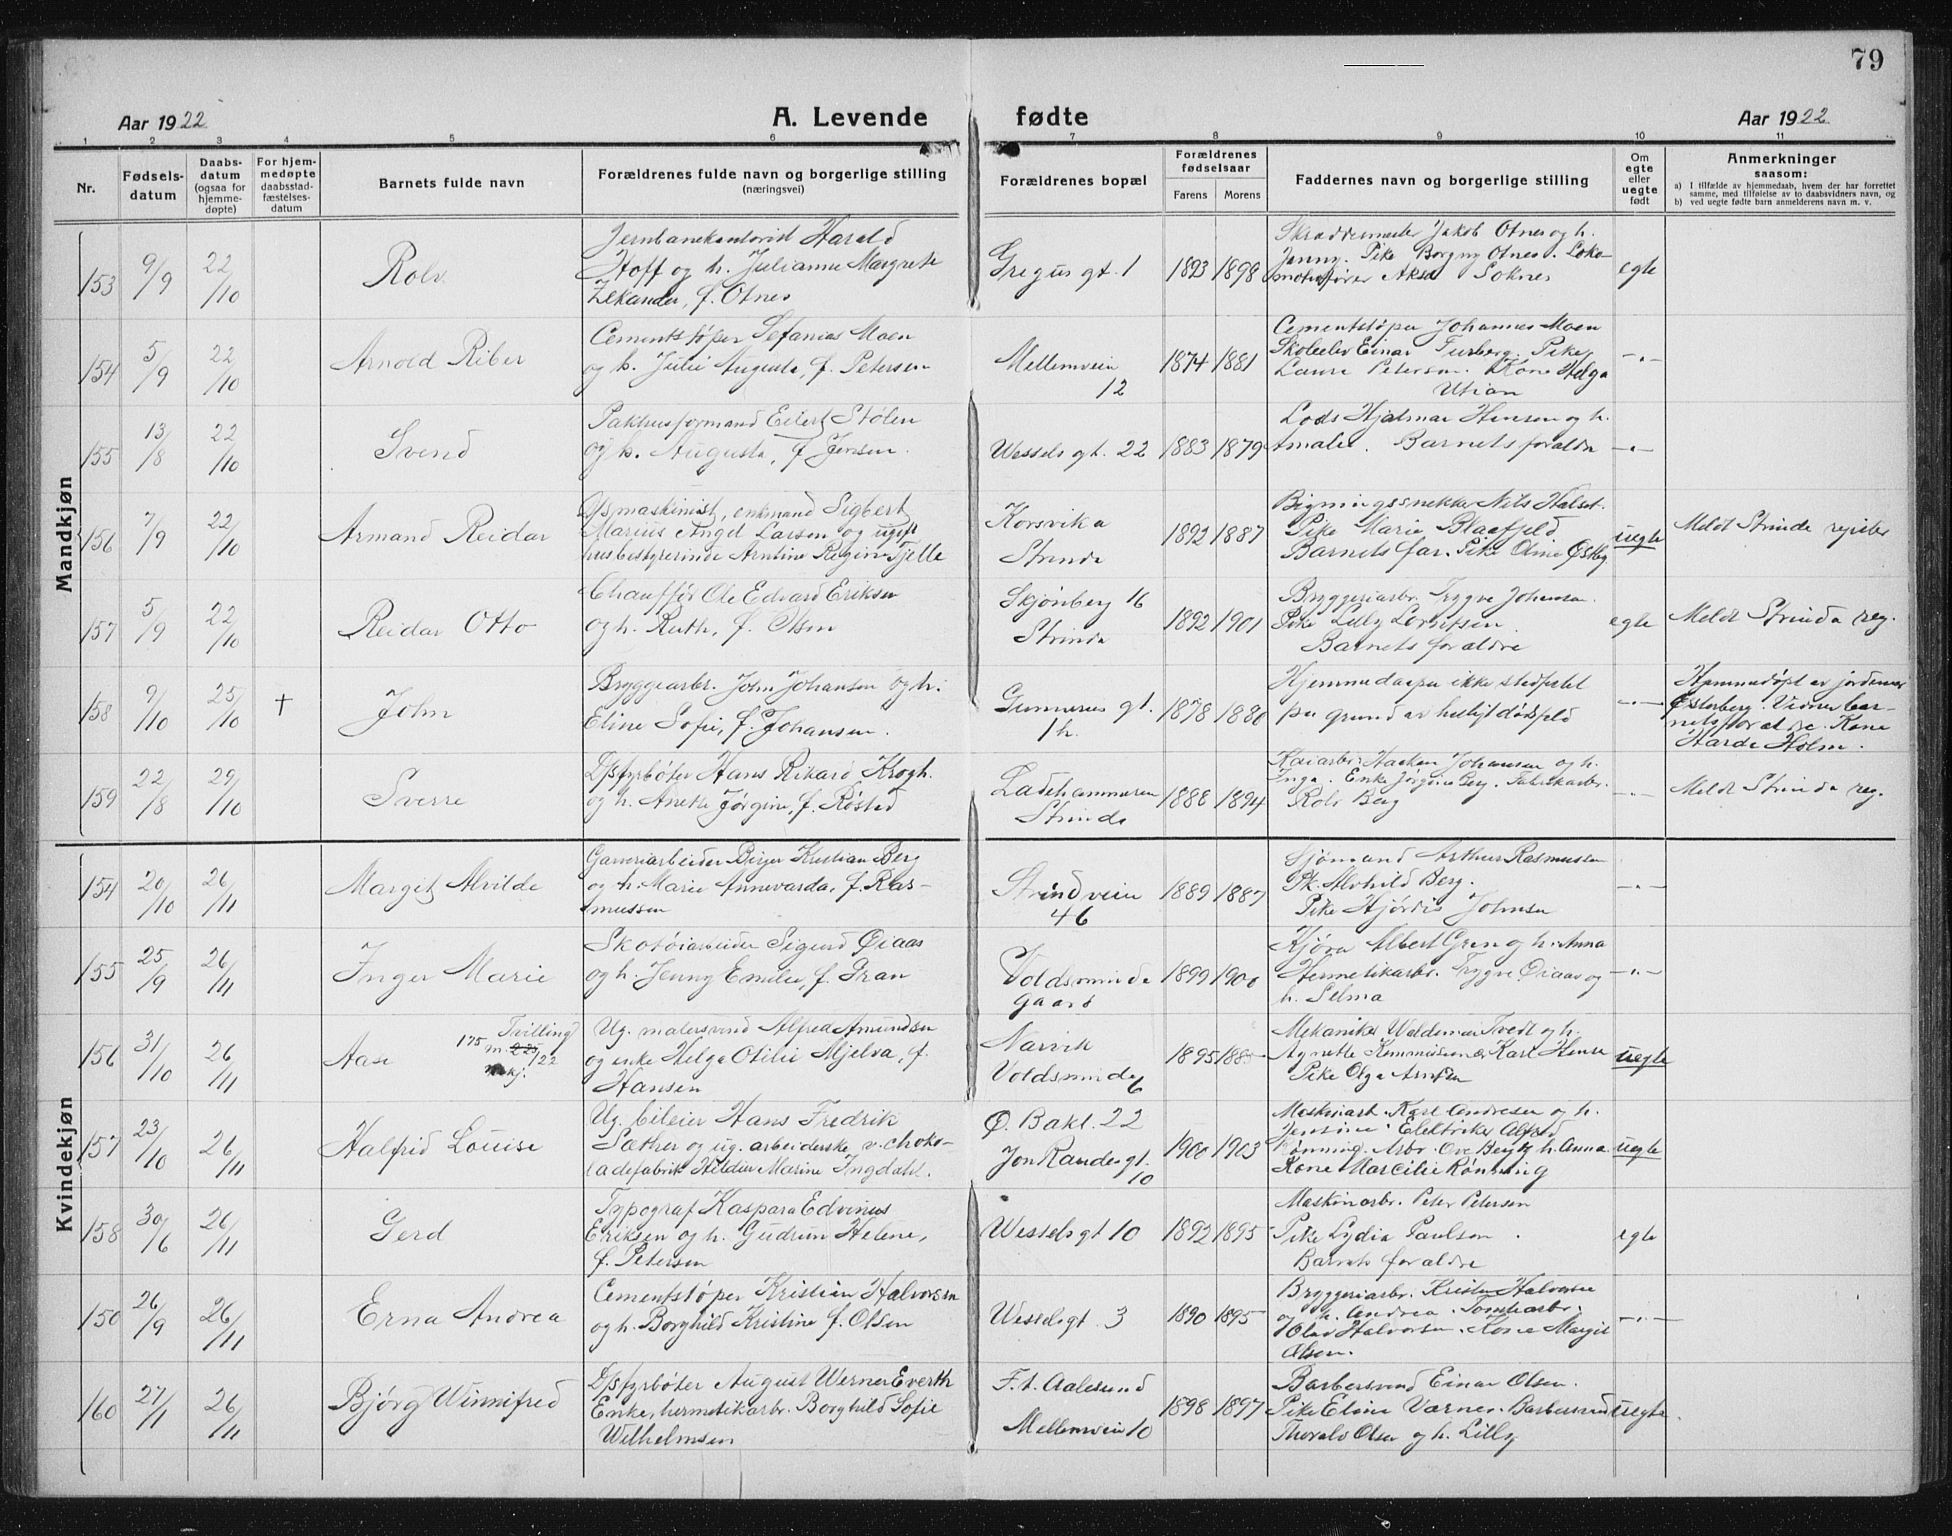 79
Aar 1922
A. Levende fødte
Aar 1922
1 2 3 4 5 6 7 8 9 10 11
Nr.
Fødsels-
datum
Daabs-
datum
(ogsaa for
hjemme-
døpte)
For hjem-
medøpte
daabsstad-
fæstelses-
datum
Barnets fulde navn
Forældrenes fulde navn og borgerlige stilling
(næringsvei)
Forældrenes bopæl
Forældrenes
fødselsaar
Farens Morens
Faddernes navn og borgerlige stilling
Om
egte
eller
uegte
født
Anmerkninger
saasom:
a) I tilfælde av hjemmedaab, hvem der har forrettet
samme, med tilføielse av to daabsvidners navn, og
b) ved uegte fødte barn anmelderens navn m. v.
Mandkjøn
153 9/9 22/10 Rolv
Jernbanekontorist Harald
Hoff og h. Julianne Margrete
f. Otnes
Gregus gt. 1
1893 1898
Skræddermester Jakob Otnes og h.
Jenny. Pike Borgny Otnes. Loko-
motivfører Soknes
egte
154 5/9 22/10 Arnold Reiber
Cementstøper Sefanias Moen
og h. Julie Augusta, f. Petersen
Mellemveien
12
1874 1881
Cementstøper Johannes Moen
Skoleelev Einar Pike
Laura Petersen. Kone Helga
Utian
-"-
155 13/8 22/10 Svend
Pakhusformand Eilert Stølen
og h. Augusta, f. Jensen.
Wessels gt. 22
1883 1879
Lods Hjalmar Hansen og h.
Amalie. Barnets forældre
-"-
156 7/9 22/10 Armand Reidar
D/smaskinist, enkmand Sigbert
Marius Angel Larsen og ugift
husbestyrerinde Arntine Regine Tjelle
Korsvika
Strinda
1892 1887
Bygningssnekker Nils Halset.
Pike Marie Blaafjeld
Barnets far. Pike Olina Østby
uegte
Meldt Strinda register
157 5/9 22/10 Reidar Otto
Chauffør Ole Edvard Eriksen
og h. Ruth, f. Olsen
Skjønberg 16
Strinda
1892 1901
Bryggeriarbr. Trygve Johansen.
Pike Lilly Lorntsen.
Barnets forældre
egte
Meldt Strinda reg.
158 9/10 25/10 † John
Bryggearbr. John Johansen og h.
Eline Sofie, f. Johansen.
Gunnerus gt.
1 h.
1878 1880
Hjemmedaapen ikke stadfæstet
paa grund av hastigt dødsfald
-"-
Hjemmedøpt av jordemor
Østerberg. Vidner bar-
nets forældre. Kone
Holm.
159 22/8 29/10 Sverre
D/sfyrbøter Hans Rikard Krogh.
og h. Anette Jørgine, f. Røstad
Ladehammeren
Strinda
1888 1894
Kaiarbr. Haakon Johansen og h.
Inga. Enke Jørgine Berg. Fabrikarbr.
Rolv Berg
-"-
Meldt Strinda reg.
Kvindekjøn
154 20/10 26/11 Margit Alvilde
Garveriarbeider Birger Kristian Berg
og h. Marie Annevarda, f. Ras-
mussen
Strindveien
46
1889 1887
Sjømand Arthur Rasmussen
Pk. Alvhild Berg.
Pike Hjørdis Johnsen
-"-
155 25/9 26/11 Inger Marie
Skotøiarbeider Sigurd Øiaas
og h. Jenny Emilie, f. Gran
Voldsminde
gaard
1899 1900
Kjøra Albert Gren og h. Anna
Hermetikarbr. Trygve Øiaas og
h. Selma
-"-
156 31/10 26/11 Aase
Tvilling
175
m. /22
Ug. malersvend Alfred Amundsen
og enke Helga Otilie Mjelva, f.
Hansen
Narvik
Voldsminde
6
1895
Mekaniker Waldemar Tvedt og h.
Agnette Karl Hansen
Pike Olga
uegte
157 23/10 26/11 Halfrid Louise
Ug. bileier Hans Fredrik
Sæther og ug. arbeiderske v. choko-
ladefabrik Hilda Marine Ingdahl.
Ø. Bakl. 22
Jon Raudes gt.
10
1900 1903
Maskinarb. Karl Andresen og h.
Jensine. Elektriker Alfred
Rønning. Arbr. Ove Berg og h. Anna
Kone Marcilie Rønning
uegte
158 30/6 26/11 Gerd
Typograf Kaspara Edvinus
Eriksen og h. Gudrun Helene,
f. Petersen
Wessels gt 10
1892 1895
Maskinarbr. Peter Petersen
Pike Lydia Paulson.
Barnets forældre
egte
150 26/9 26/11 Erna Andrea
Cementstøper Kristian Halvorsen
og h. Borghild Kristine f. Olsen
Wessels gt. 3
1890 1895
Bryggeriarbr. Kristen Halvorsen
og h. Andrea. Tomtearbr.
Olav Halvorsen. Kone Margit
Olsen.
-"-
160 27/1 26/11 Bjørg Winnifred
D/sfyrbøter August Werner Everth
Enke, hermetikarbr. Borghild Sofie
Wilhelmsen
F. t. Aalesund
Mellemveien 10
1898 1897
Barbersvend Einar Olsen.
Pike Eline Varnes. Barbersvend
Thoralv Olsen og h. Lilly
uegte.